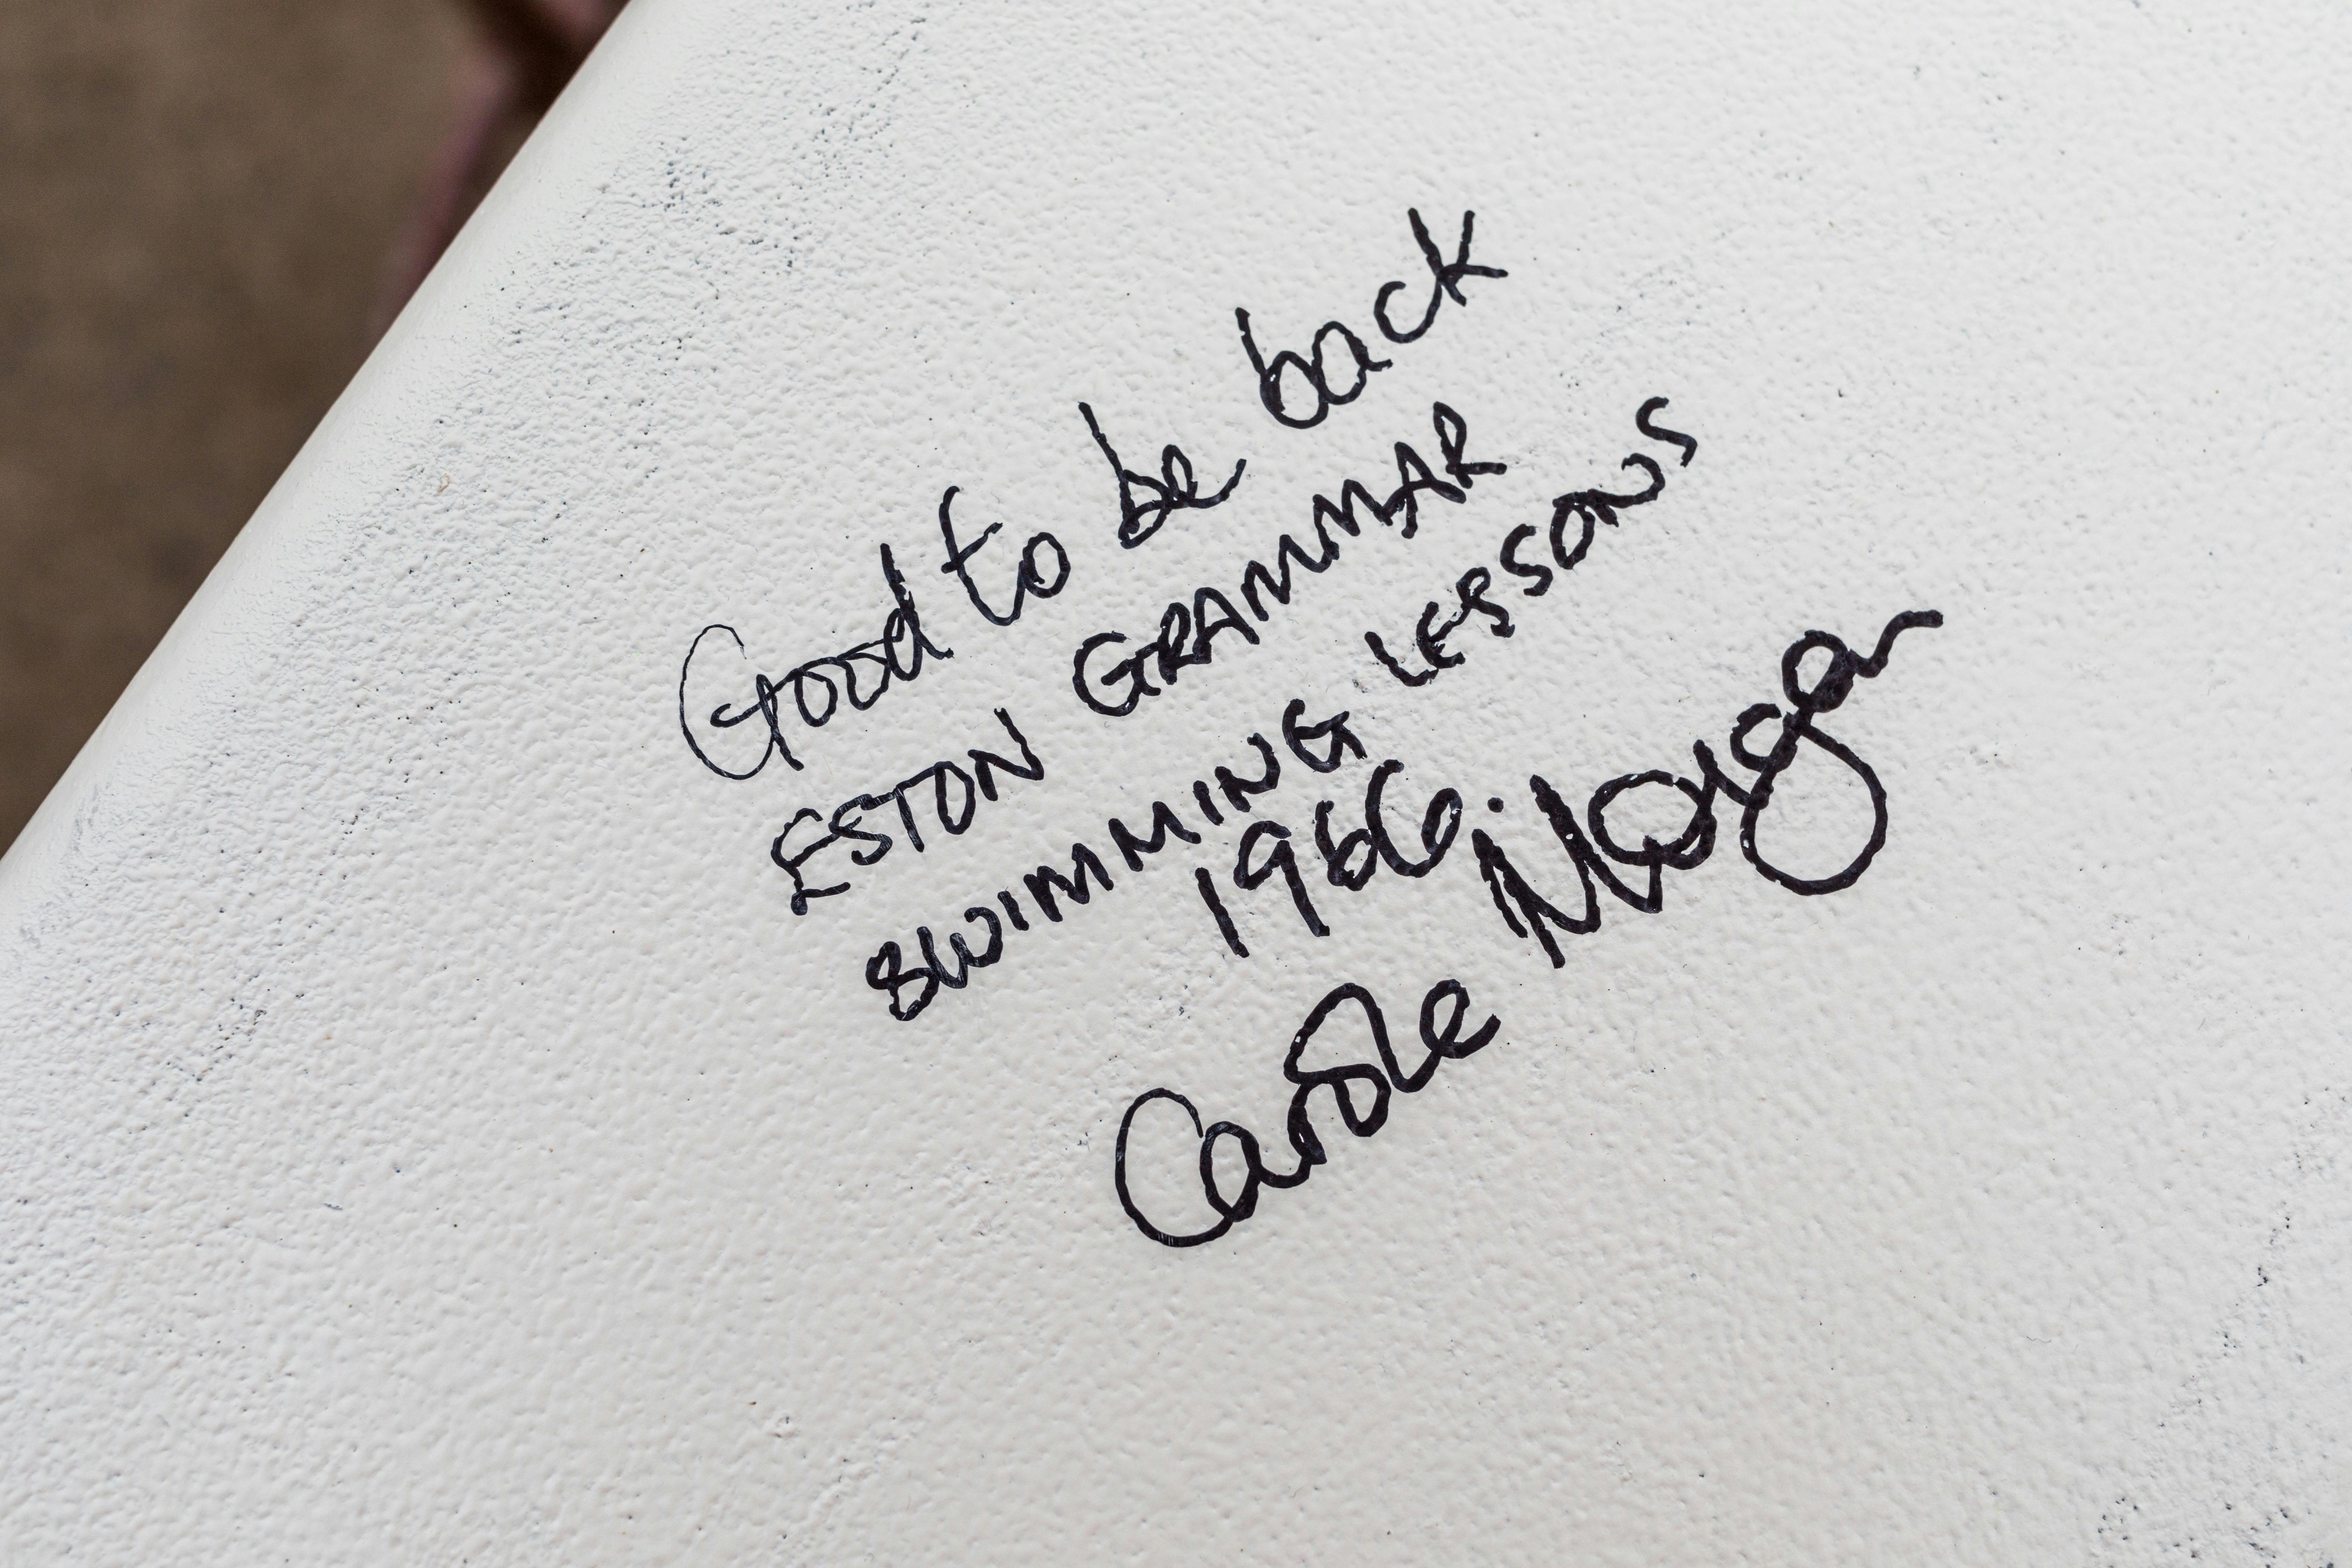 Good to be back
ESTON GRAMMAR
SWIMMING LESSONS
1966.
Carole Morgan